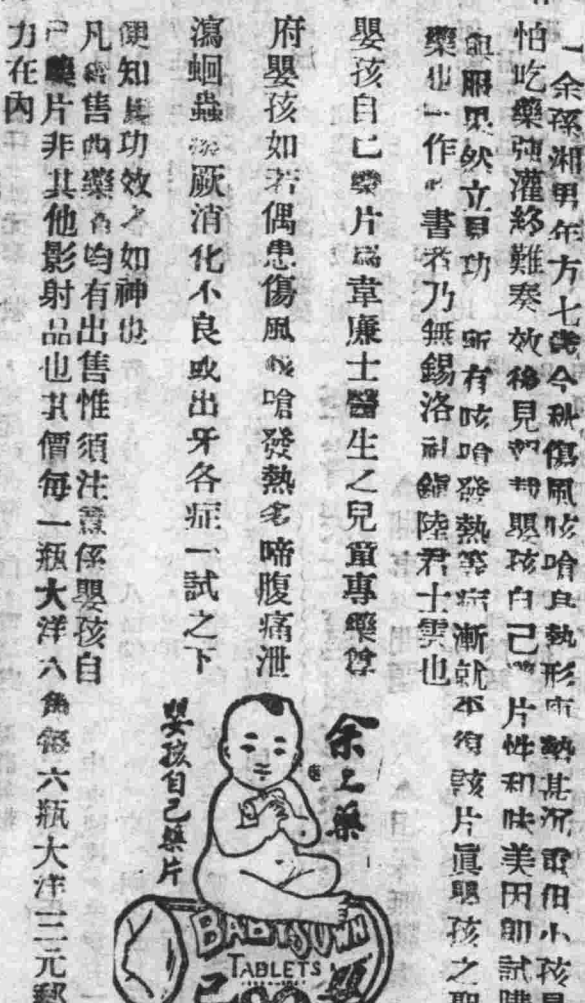 一余孫湘甲年方七歲今秋傷風咳嗆身熱形 熱甚沉重但小孩
怕吃藥強灌終難奏效後見 嬰孩自己 片性和味美因即試購
與服果然立見功 所有咳嗆發熱等症漸就平復該片眞嬰孩之聖
藥也一作 書者乃無錫洛社鎮陸君士雲也
嬰孩自己藥片爲韋廉士醫生之兒童專藥尊
府嬰孩如若偶患傷風咳嗆發熱多啼腹痛泄
瀉蛔蟲 厥消化不良或出牙各症一試之下
便知其功效之如神也
凡經售西藥者均有出售惟須注意係嬰孩自
己藥片非其他影射品也其價每一瓶大洋六角每六瓶大洋三元郵
力在內
余之藥
嬰孩自己藥片
BABY'S OWN
TABLETS
己